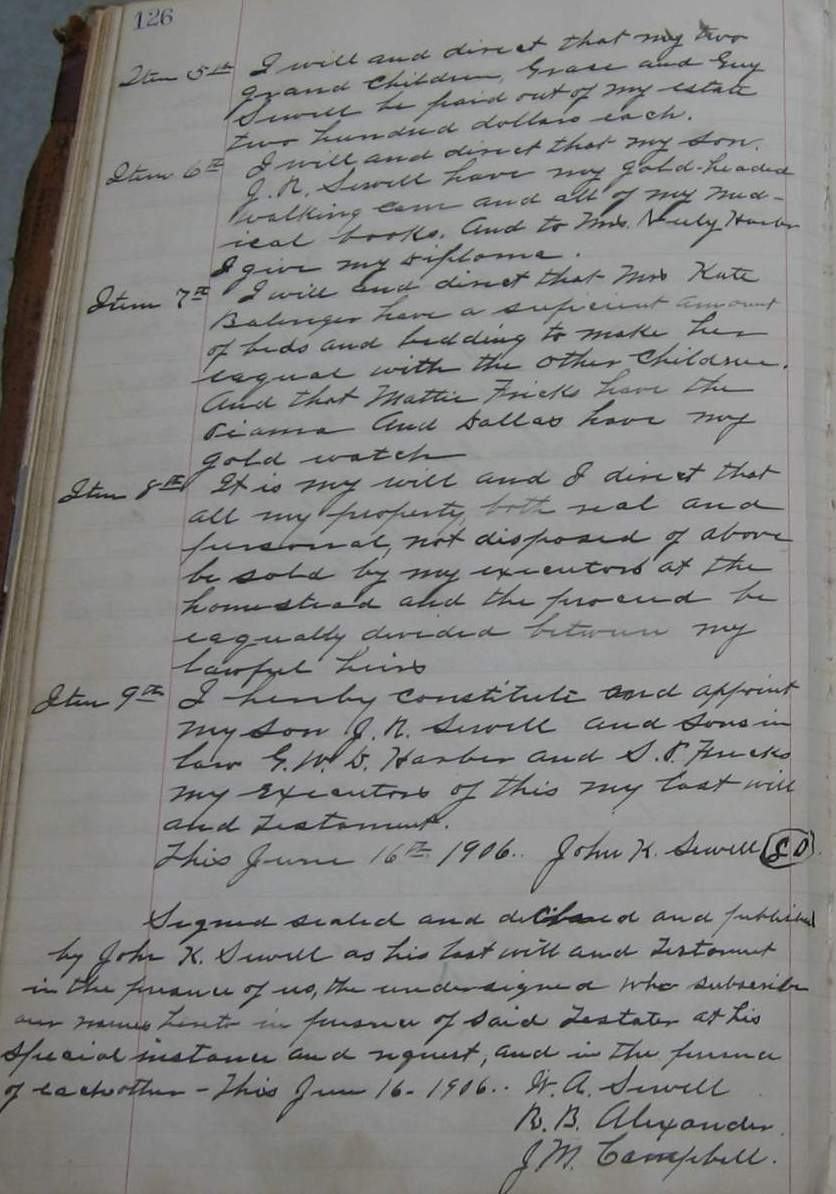 126
Item 5th I will and direct that my two
grand children, Grace and Guy
Sewell be paid out of my estate
two hundred dollars each.
Item 6th I will and direct that my son.
J. N. Sewell have my gold-headed
walking cane and all of my med-
ical books. And to Mrs. Neely Harber
I give my Diploma.
Item 7th I will and direct that Mrs Kate
Balenger have a suficient amount
of beds and bedding to make her
eaqual with the other Children.
And that Mattie Fricks have the
Pianna And Dallas have my
gold watch
Item 8th It is my will and I direct that
all my property, both real and
personal, not disposed of above
be sold by my executors at the
homestead and the proceed be
eaqually devided between my
lawful heirs
Item 9th I hereby constitute and appoint
my son J. N. Sewell and Sons in
law G. W. D. Harber and S. P. Fricks
my Executors of this my last will
and Testament.
This June 16th 1906. John K. Sewell
Signed sealed and declared and published
by John K. Sewell as his last will and Testament
in the presence of us, the undersigned who subscribe
our names hereto in presence of said Testator at his
special instance and request, and in the presence
of each other - This June 16 - 1906. W. A. Sewell
R. B. Alexander.
J. M. Campbell.